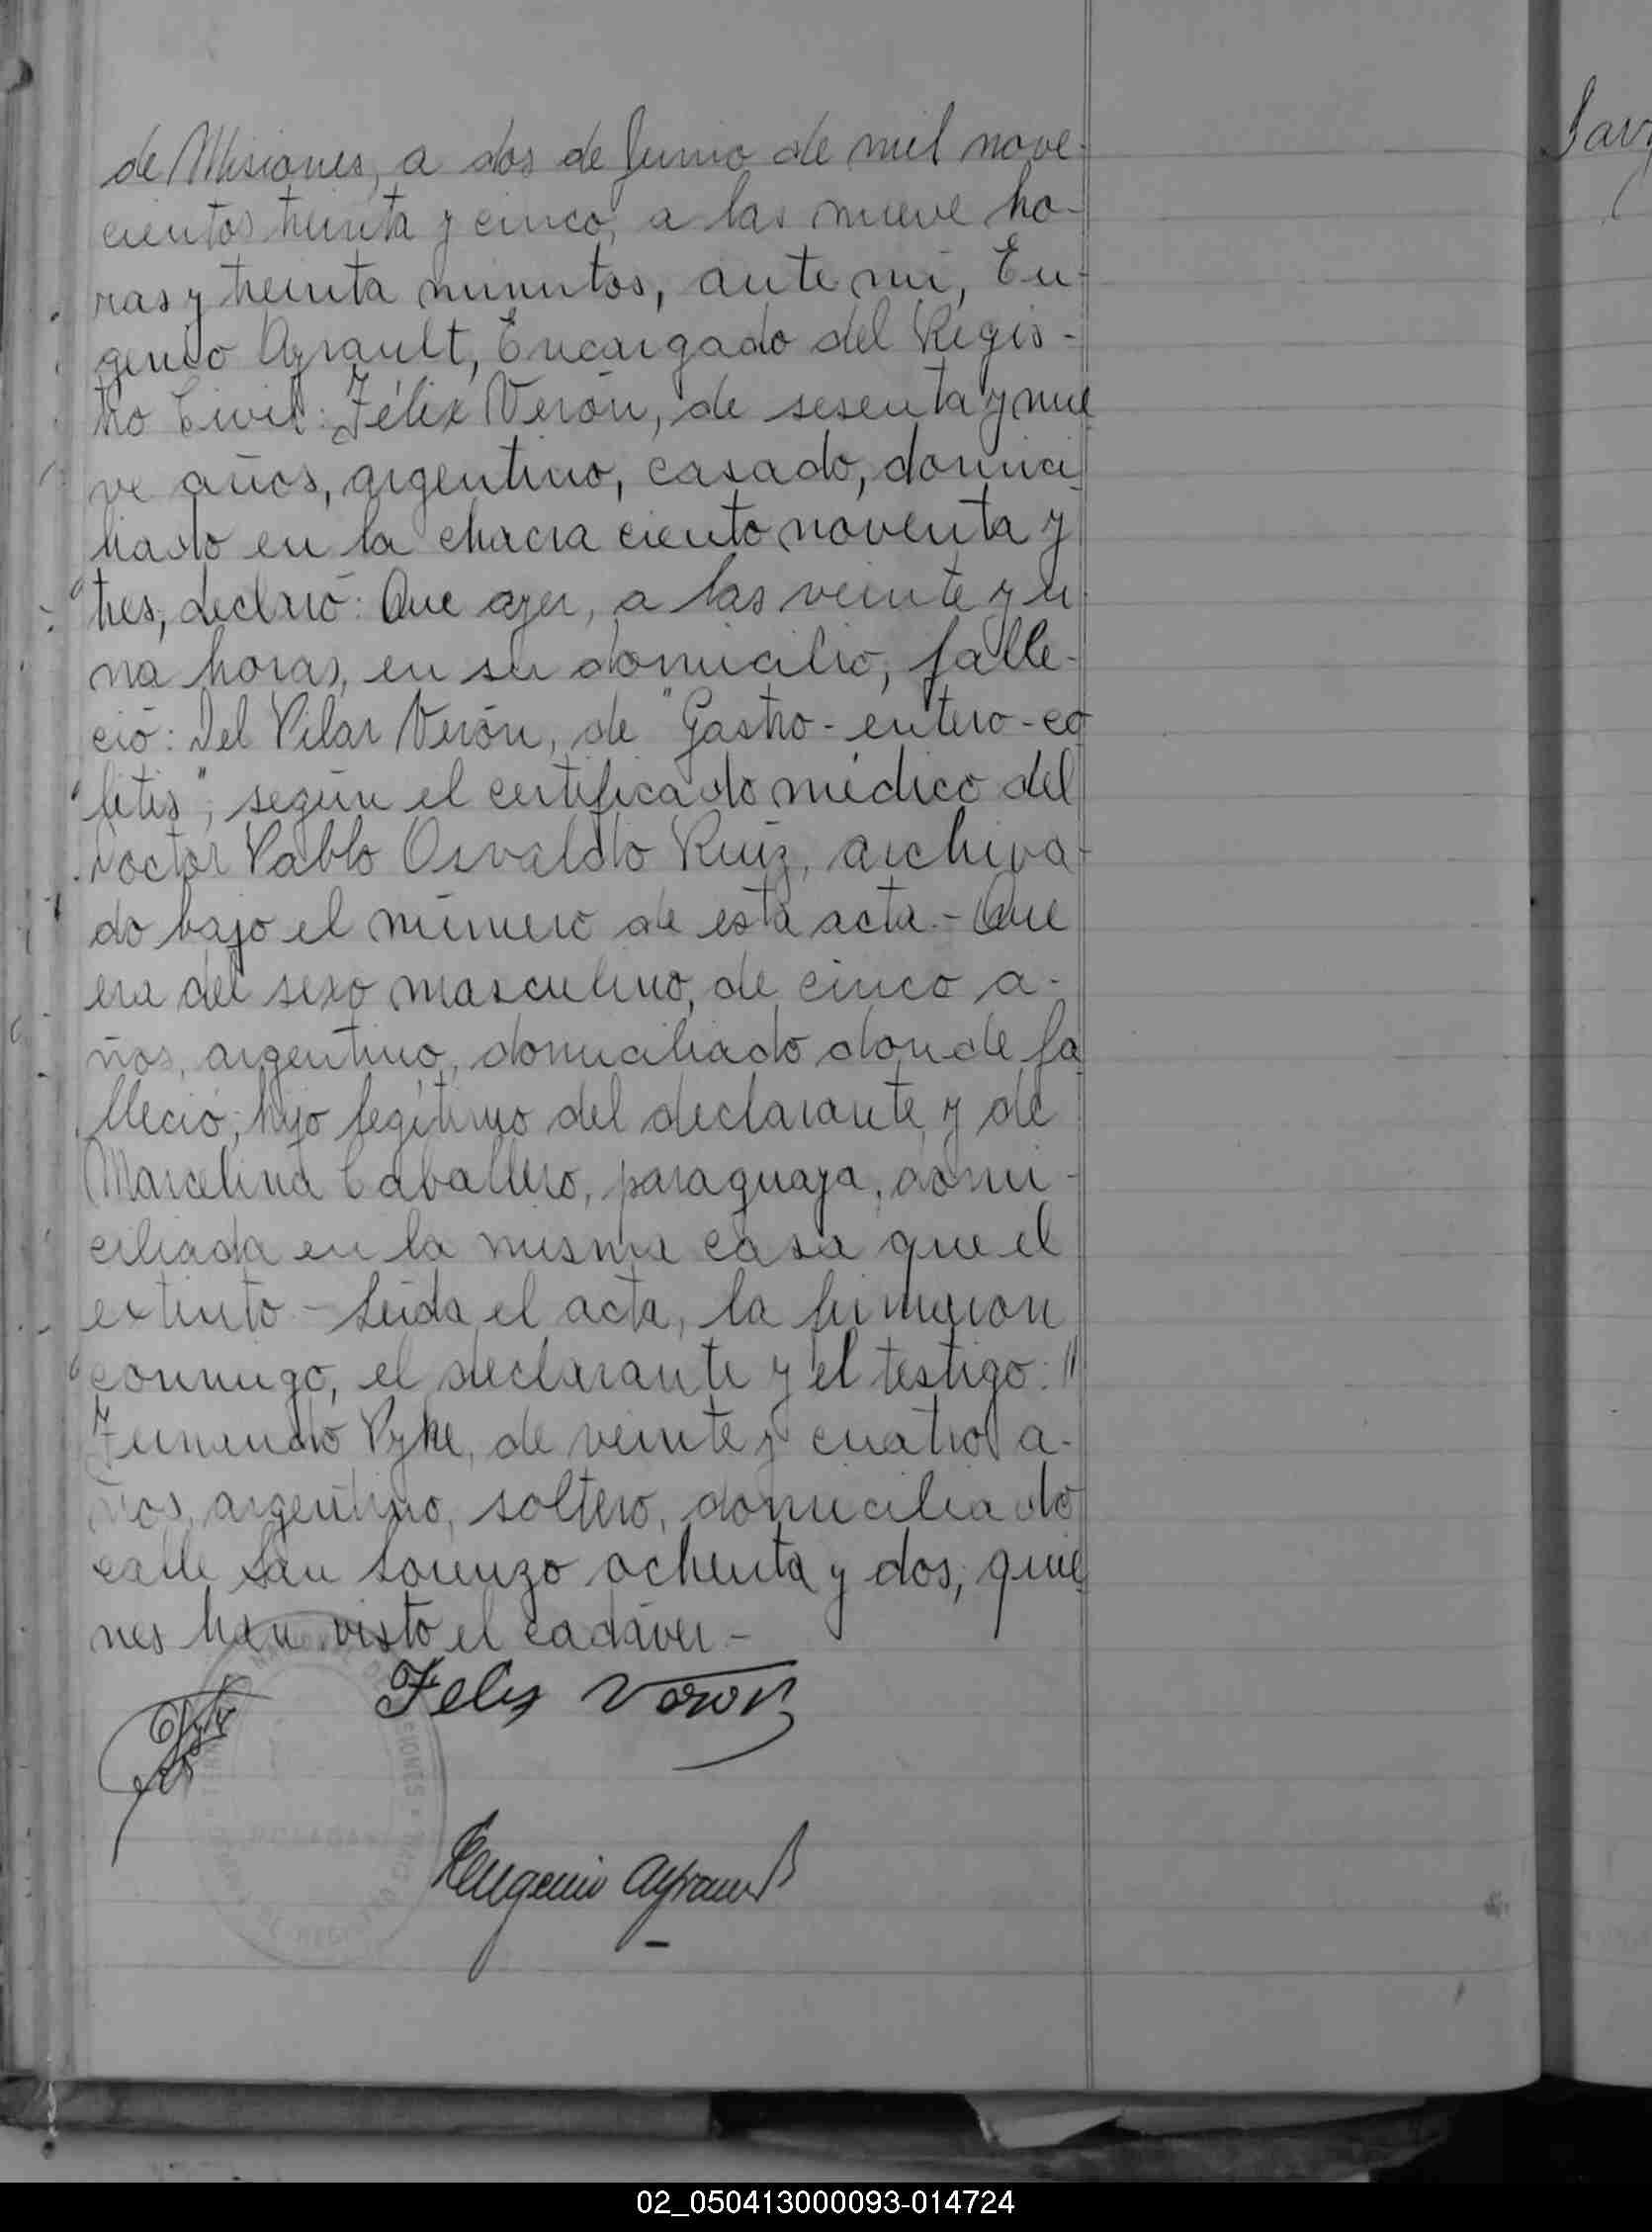 de Misiones, a dos de Junio de mil nove-
cientos treinta y cinco, a las nueve ho-
ras y treinta minutos, ante mí, Eu-
genio Ayrault, Encargado del Regis-
tro Civil: Félix Verón, de sesenta y nue
ve años, argentino, casado, domici
liado en la chacra ciento noventa y
tres, declaró: Que ayer, a las veinte y u
na horas, en su domicilio, falle-
ció: Del Pilar Verón, de "Gastro-entero-co
litis", según el certificado médico del
Doctor Pablo Osvaldo Ruiz, archiva-
do bajo el número de esta acta.- Que
era del sexo masculino, de cinco a-
ños, argentino, domiciliado donde fa
lleció; hijo legítimo del declarante y de
Marcelina Caballero, paraguaya, domi-
ciliada en la misma casa que el
extinto - Leída el acta, la firmaron
conmigo, el declarante y el testigo: "
Fernando Pyke, de veinte y cuatro a-
ños, argentino, soltero, domiciliado
calle San Lorenzo ochenta y dos; quie
nes han visto el cadáver -
Felix Veron
Eugenio Ayrault
02_050413000093-014724